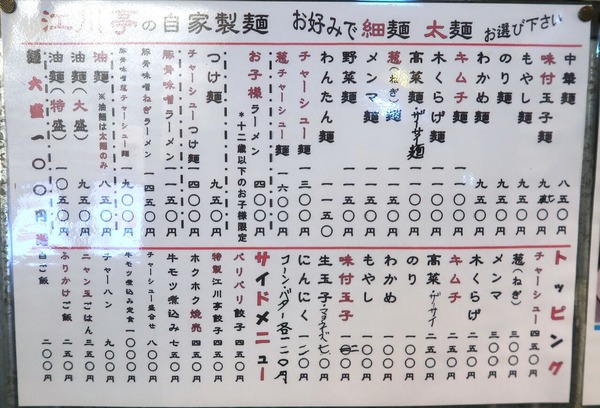 江川亭の自家製麺 お好みで細麺 太麺 お選び下さい
中華麺 八五〇円
味付玉子麺
もやし麺 九五〇円
のり麺 九五〇円
わかめ麺 九五〇円
キムチ麺
木くらげ麺
高菜麺 ザーサイ麺
葱(ねぎ)麺
メンマ麺
野菜麺
わんたん麺 一一五〇
チャーシュー麺 一三〇〇円
葱チャーシュー麺 一六〇〇円
お子様ラーメン 四〇〇円
*十二歳以下のお子様限定
つけ麺 九五〇円
チャーシューつけ麺 一四〇〇円
豚骨味噌ラーメン 一一五〇円
豚骨味噌ねぎラーメン 一四五〇円
豚骨味噌葱チャーシュー麺 一九〇〇円
油麺 ※油麺は太麺のみ 八五〇円
油麺(大盛) 九五〇円
油麺(特盛) 一〇五〇円
麺大盛 一〇〇円
トッピング
チャーシュー 四五〇円
葱(ねぎ) 三〇〇円
メンマ
木くらげ
キムチ 二五〇円
高菜 ザーサイ 二五〇円
のり 一〇〇円
わかめ 一〇〇円
もやし 一〇〇円
味付玉子
生玉子
にんにく
コーン・バター 各一二〇円
サイドメニュー
パリパリ餃子 四五〇円
特製江川亭餃子 四五〇円
ホクホク焼売 四五〇円
牛モツ煮込み 七五〇円
チャーシュー盛合せ 八〇〇円
牛モツ煮込み定食 一〇〇〇円
チャーハン 九〇〇円
ニャン玉ごはん 三五〇円
ふりかけご飯 二五〇円
白ご飯 二〇〇円